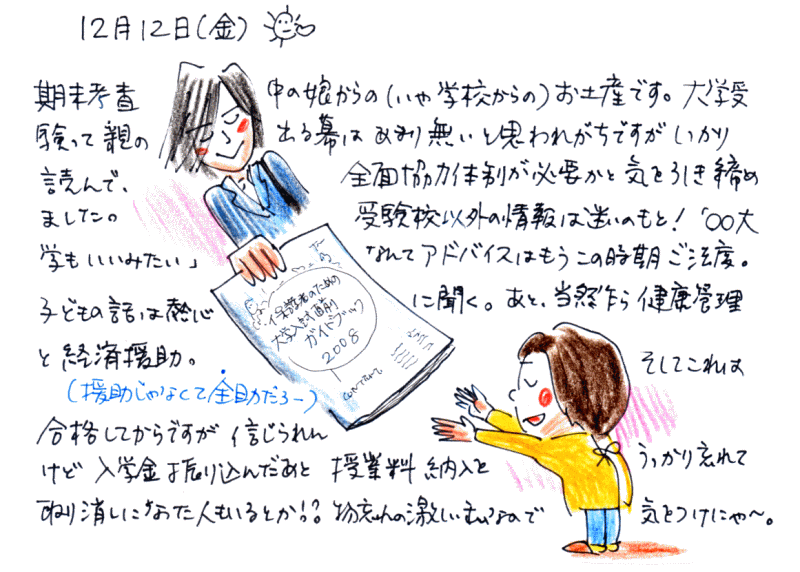 12月12日(金)
期末考査中の娘からの(いや学校からの)お土産です。大学受
験って親の出る幕はあまり無いと思われがちですがしっかり
読んで、全面協力体制が必要かと気を引き締め
ました。受験校以外の情報は迷いのもと!「○○大
学もいいみたい」なんてアドバイスはもうこの時期ご法度。
子どもの話は熱心に聞く。あと、当然乍ら健康管理
と経済援助。そしてこれは
(援助じゃなくて全助だろー)
合格してからですが信じられん
けど入学金振り込んだあと授業料納入をうっかり忘れて
取り消しになった人もいるとか!?物忘れの激しい私なので気をつけにゃ〜。
保護者のための
大学入試直前
ガイドブック
2008